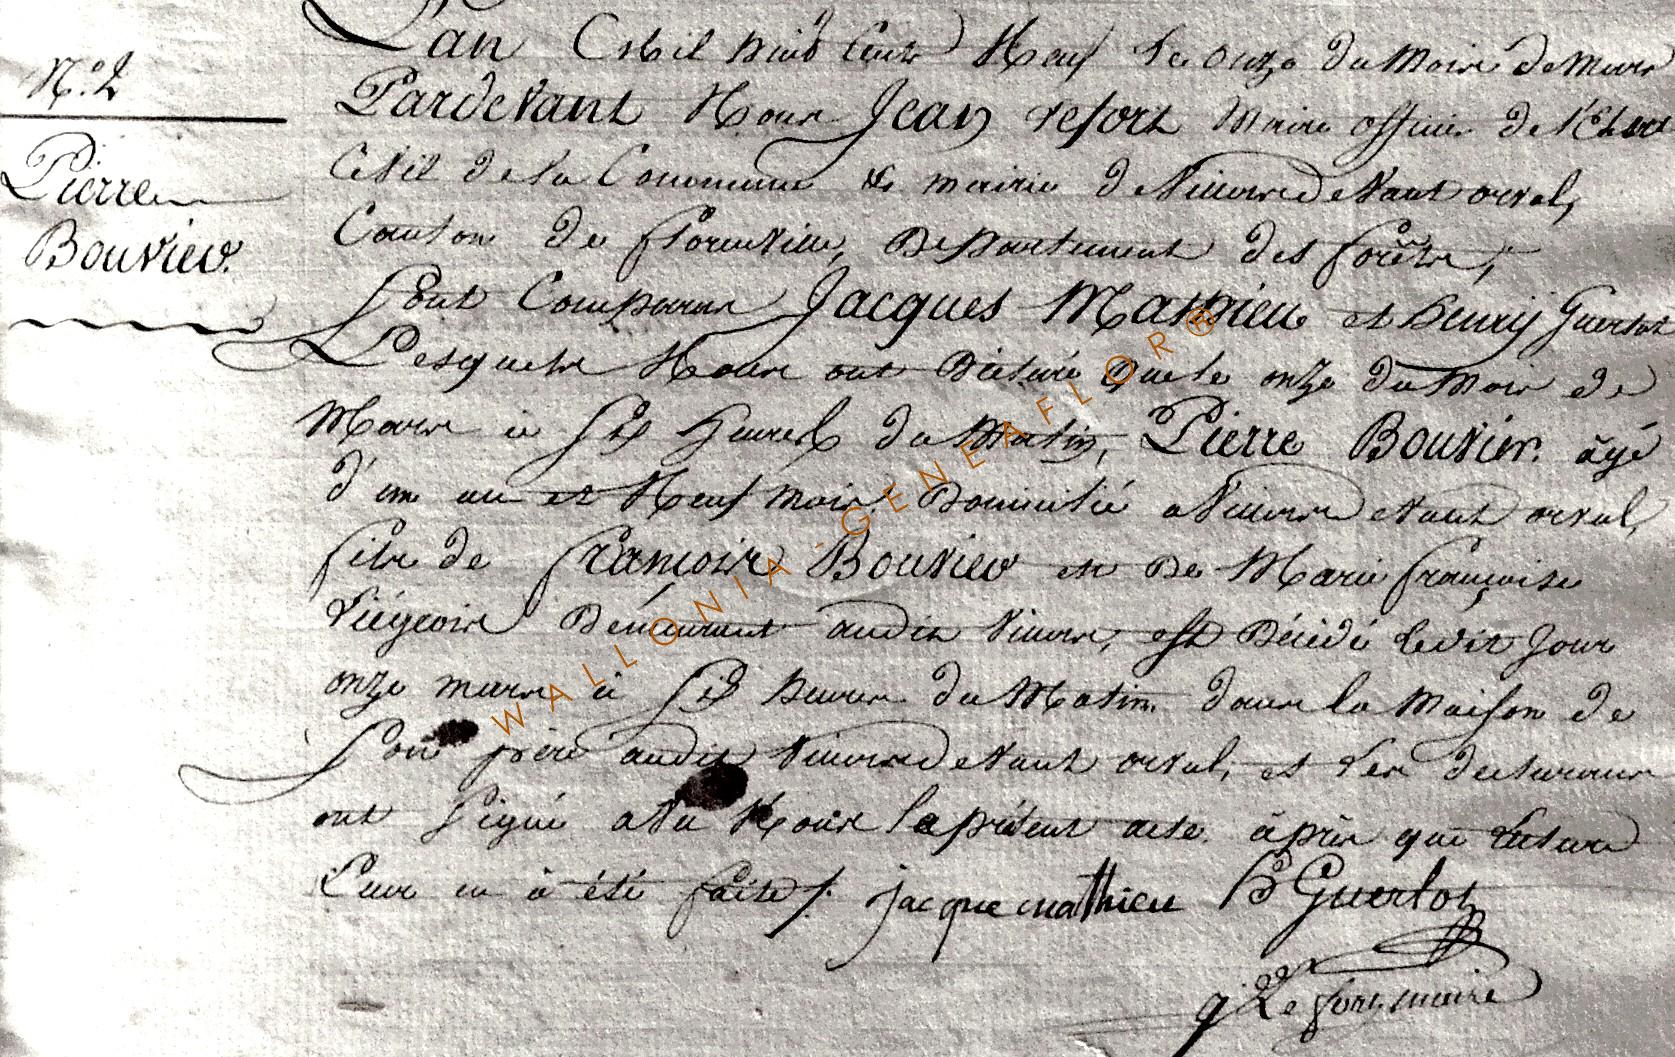 N.º 2
Pierre
Bouvier.
L'an Mil huit Cent Neuf Le onze du Mois de Mars
Pardevant Nous Jean Lefort Maire officier de l'Etat
Civil de la Commune & mairie de Villers devant orval,
Canton de florenville, Departement des forêts,
Sont Comparus Jacques Mathieu et henry Guerlot
Lesquels Nous ont Déclaré que le onze du Mois de
Mars à six heures du Matin, Pierre Bouvier. âgé
d'un an et Neuf mois. Domicilié a Villers devant orval,
fils de francois Bouvier et De Marie françoise
Liégeois Demeurant audit Villers, est Décédé ledit Jour
onze mars à six heures du Matin. dans la Maison de
Son père audit Villers devant orval, et Les declarans
ont signé avec Nous le présent acte. après que Lecture
Leur en à été faite /. jacque mathieu H Guerlot
j Le fort, maire
WALLONIA-GENEAFLOR®